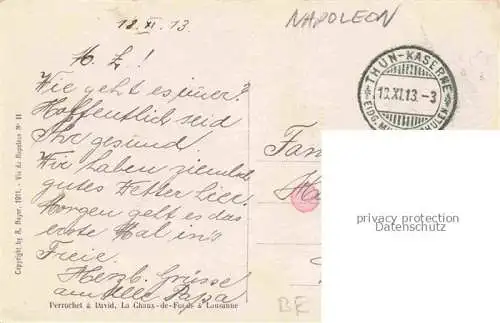 12.XI.13
NAPOLEON
M. L.!
Wie geht es immer?
Hoffentlich seid
Ihr gesund
Wir haben ziemlich
gutes Wetter hier.
Morgen geht es das
erste Mal in's
Freie.
Herzl. Grüsse
an Alle Papa
THUN-KASERNE
12.XI.13.-3
EIDG. MIL
HULEN
Fam
privacy protection
Datenschutz
BE
Copyright by R. Hayer, 1911. - Vie de Napoléon Nº 11
Perrochet & David, La Chaux-de-Fonds & Lausanne